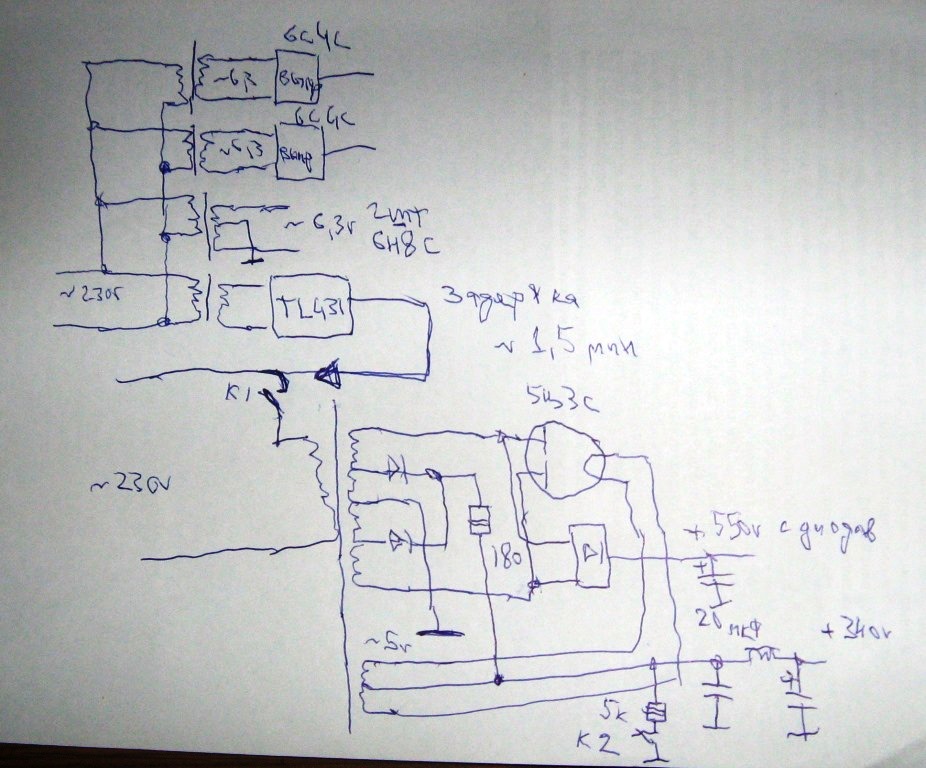 6С4С
~6,3
Выпр
6С4С
~6,3
Выпр
~6,3v 2шт
6Н8С
~230v
TL431
Задержка
~ 1,5 мин
К1
5Ц3С
~230v
+ 550v с диодов
180
20 мкф
+340v
~5v
5к
К2